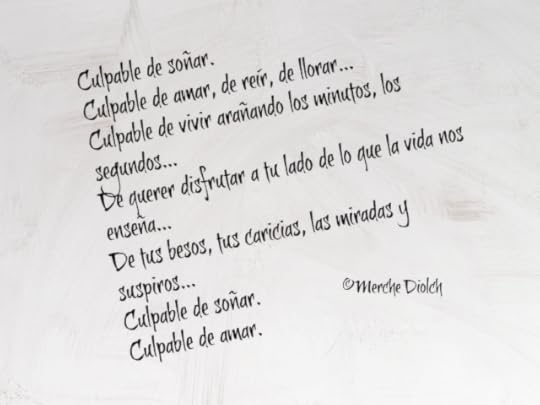 Culpable de soñar.
Culpable de amar, de reír, de llorar...
Culpable de vivir arañando los minutos, los
segundos...
De querer disfrutar a tu lado de lo que la vida nos
enseña...
De tus besos, tus caricias, las miradas y
suspiros...
Culpable de soñar.
Culpable de amar.
©Merche Diolch